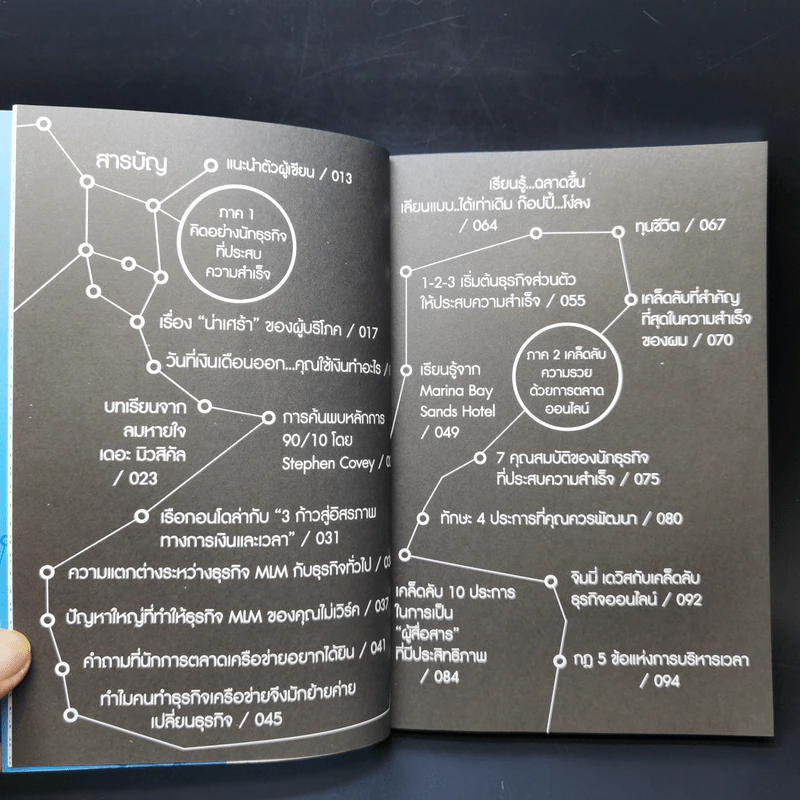 สารบัญ
แนะนำตัวผู้เขียน / 013
ภาค 1
คิดอย่างนักธุรกิจ
ที่ประสบ
ความสำเร็จ
เรื่อง "น่าเศร้า" ของผู้บริโภค / 017
วันที่เงินเดือนออก...คุณใช้เงินทำอะไร /
บทเรียนจาก
ลมหายใจ
เดอะ มิวสิคัล
/ 023
การค้นพบหลักการ
90/10 โดย
Stephen Covey /
เรือกอนโดล่ากับ "3 ก้าวสู่อิสรภาพ
ทางการเงินและเวลา" / 031
ความแตกต่างระหว่างธุรกิจ MLM กับธุรกิจทั่วไป /
ปัญหาใหญ่ที่ทำให้ธุรกิจ MLM ของคุณไม่เวิร์ค / 037
คำถามที่นักการตลาดเครือข่ายอยากได้ยิน / 041
ทำไมคนทำธุรกิจเครือข่ายจึงมักย้ายค่าย
เปลี่ยนธุรกิจ / 045
เรียนรู้...ฉลาดขึ้น
เลียนแบบ..ได้เท่าเดิม ก๊อปปี้...โง่ลง
/ 064
ทุนชีวิต / 067
1-2-3 เริ่มต้นธุรกิจส่วนตัว
ให้ประสบความสำเร็จ / 055
เคล็ดลับที่สำคัญ
ที่สุดในความสำเร็จ
ของผม / 070
เรียนรู้จาก
Marina Bay
Sands Hotel
/ 049
ภาค 2 เคล็ดลับ
ความรวย
ด้วยการตลาด
ออนไลน์
7 คุณสมบัติของนักธุรกิจ
ที่ประสบความสำเร็จ / 075
ทักษะ 4 ประการที่คุณควรพัฒนา / 080
เคล็ดลับ 10 ประการ
ในการเป็น
"ผู้สื่อสาร"
ที่มีประสิทธิภาพ
/ 084
จิมมี่ เดวิสกับเคล็ดลับ
ธุรกิจออนไลน์ / 092
กฎ 5 ข้อแห่งการบริหารเวลา
/ 094